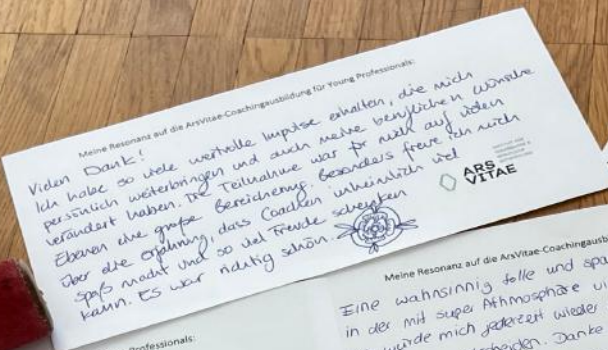 Meine Resonanz auf die ArsVitae-Coachingausbildung für Young Professionals:
Vielen Dank!
Ich habe so viele wertvolle Impulse erhalten, die mich
persönlich weiterbringen und auch meine beruflichen Wünsche
verändert haben. Die Teilnahme war für mich auf vielen
Ebenen eine große Bereicherung. Besonders freue ich mich
über die Erfahrung, dass Coachen unheimlich viel
Spaß macht und so viel Freude schenken
kann. Es war richtig schön.
ARS
VITAE
Meine Resonanz auf die ArsVitae-Coachingausb
Eine wahnsinnig tolle und spa
in der mit super Athmosphäre
würde mich jederzeit wieder
Danke
rofessionals: